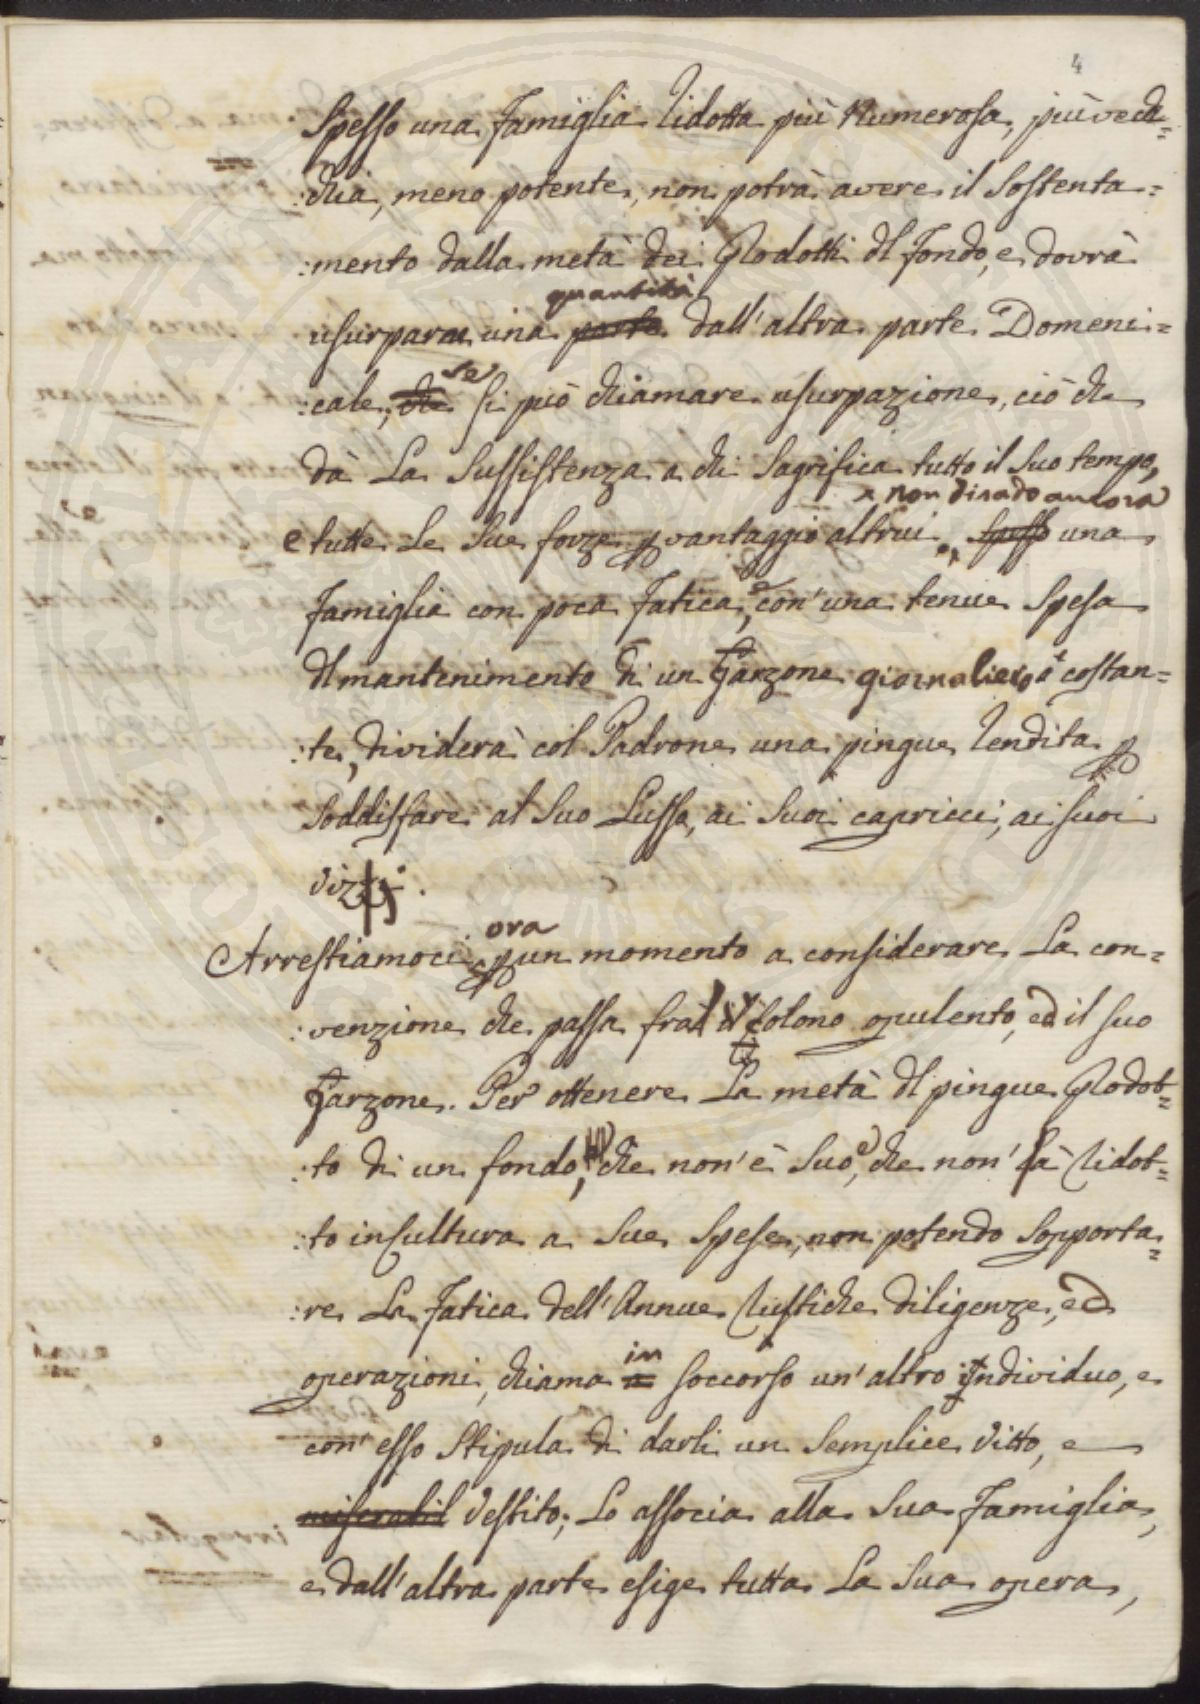 4
Spesso una Famiglia ridotta più Numerosa, più vec=
:chia, meno potente, non potrà avere il Sostenta=
:mento dalla metà dei Prodotti dl fondo, e dovrà
quantità
usurparne una parte dall'altra parte Domeni=
se
:cale, che si può chiamare usurpazione, ciò che
dà La Sussistenza a chi Sagrifica tutto il Suo tempo,
e non di rado ancora
e tutte Le Sue forze p vantaggio altrui, spesso una
Famiglia con poca Fatica, e con'una tenue Spesa
dl mantenimento di un Garzone giornaliero costan=
:te, dividerà col Padrone una pingue rendita p
Soddisfare al Suo Lusso, ai Suoi capricci, ai suoi
vizj.
ora
Arrestiamoci p un momento a considerare La con=
:venzione che passa fral il Colono opulento, ed il suo
Garzone. Per ottenere La metà dl pingue Prodot=
:to di un fondo, che non'è Suo, e che non' hà ridot=
:to in Cultura a Sue Spese, non potendo Sopporta=
:re La Fatica dell'Annue rustiche diligenze, ed
in
operazioni, chiama a soccorso un'altro individuo, e
con' esso Stipula di darli un Semplice Vitto, e
miserabil Vestito; Lo associa alla Sua Famiglia,
e dall'altra parte esige tutta La Sua opera,